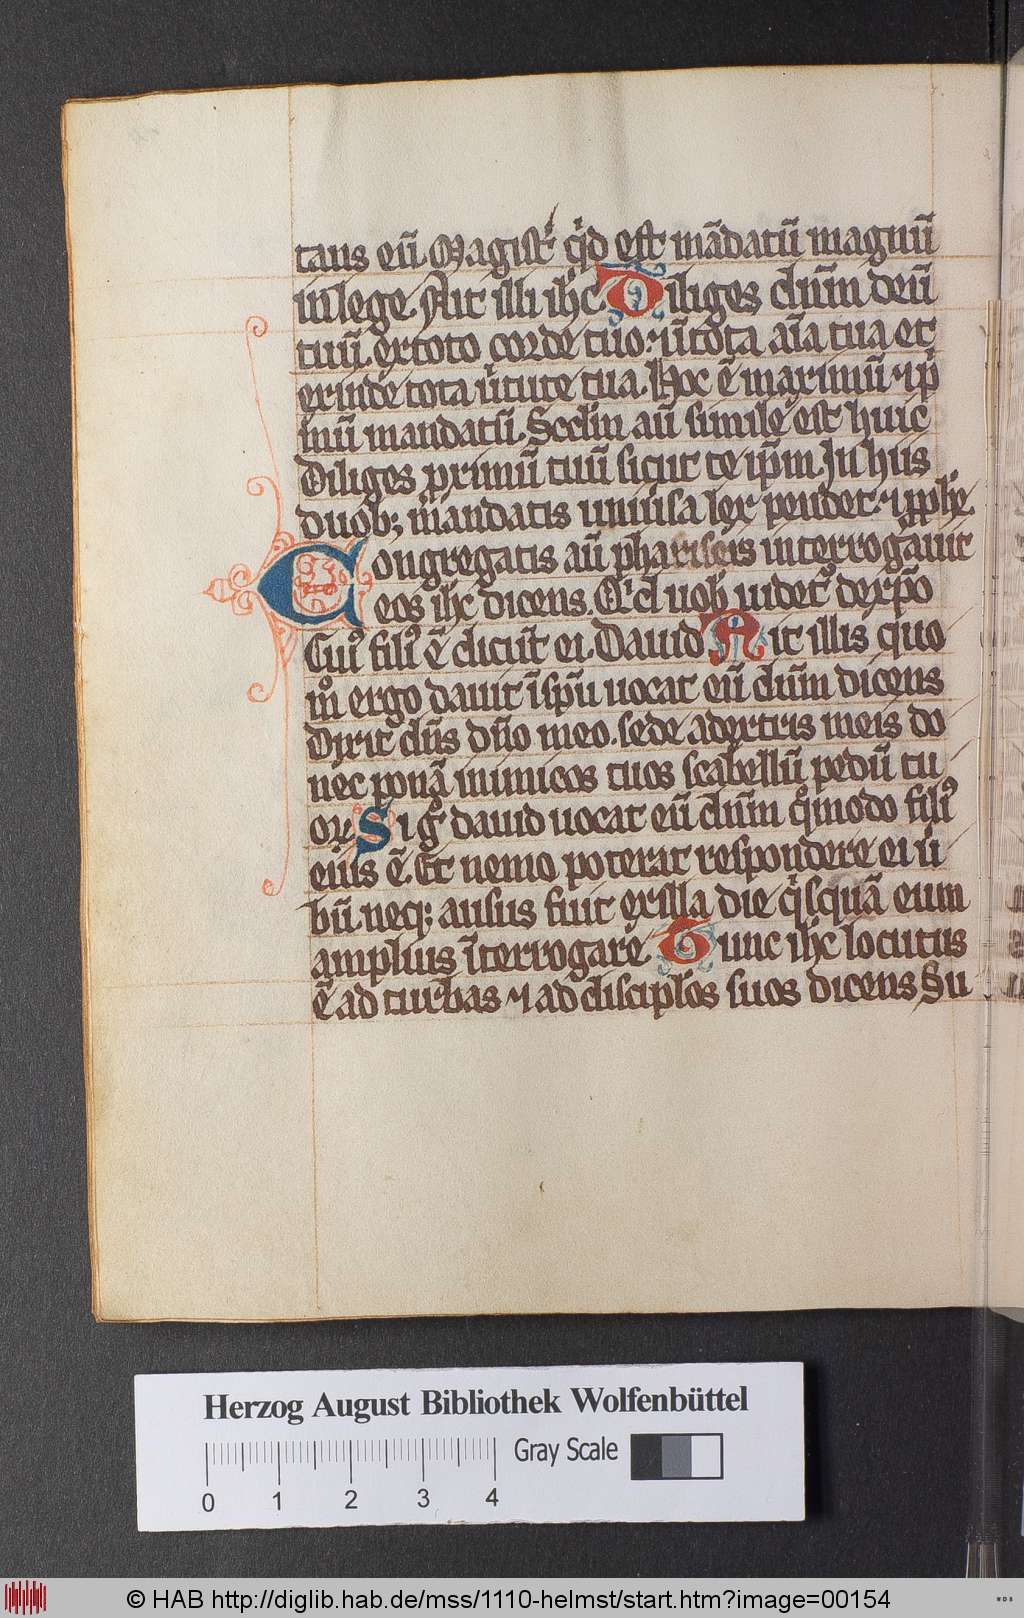 tans eū. Magist̄ q̇d est mādatū magnū
in lege. Ait illi ih̄c. Diliges dn̄m deū
tuū. ex toto corde tuo. ⁊ ī tota aīa tua et
exinde tota ū̇tute tua. Hoc ē maximū ⁊ ip̄
mū mandatū. Scd̄m aū simile est huic
Diliges primū tuū sicut te ip̄m. In hiis
duob; mandatis uniūsa lex pendet. ⁊ pp̄he.
Congregatis aū phariseis interrogauit
eos ih̄c dicens. Qͥd uob̄ uidet᷑ de xp̄o
Cuiꝰ filiꝰ ē dicūt ei. Dauid Ait illis quo
mͦ ergo dauit ī sp̄u uocat eū dn̄m dicens
Dixit dn̄s dn̄o meo. sede a dextris meis do
nec ponā inimicos tuos scabellū pedū tu
oꝝ Si gͦ dauid uocat eū dn̄m qͦmodo filiꝰ
eius ē. Et nemo poterat respondere ei ū
bū. neq; ausus fuit ex illa die qͥsquā eum
amplius īterrogare Tunc ih̄c locutus
ē ad turbas ⁊ ad discip̄los suos dicens Su
Herzog August Bibliothek Wolfenbüttel
Gray Scale
0 1 2 3 4
© HAB http://diglib.hab.de/mss/1110-helmst/start.htm?image=00154